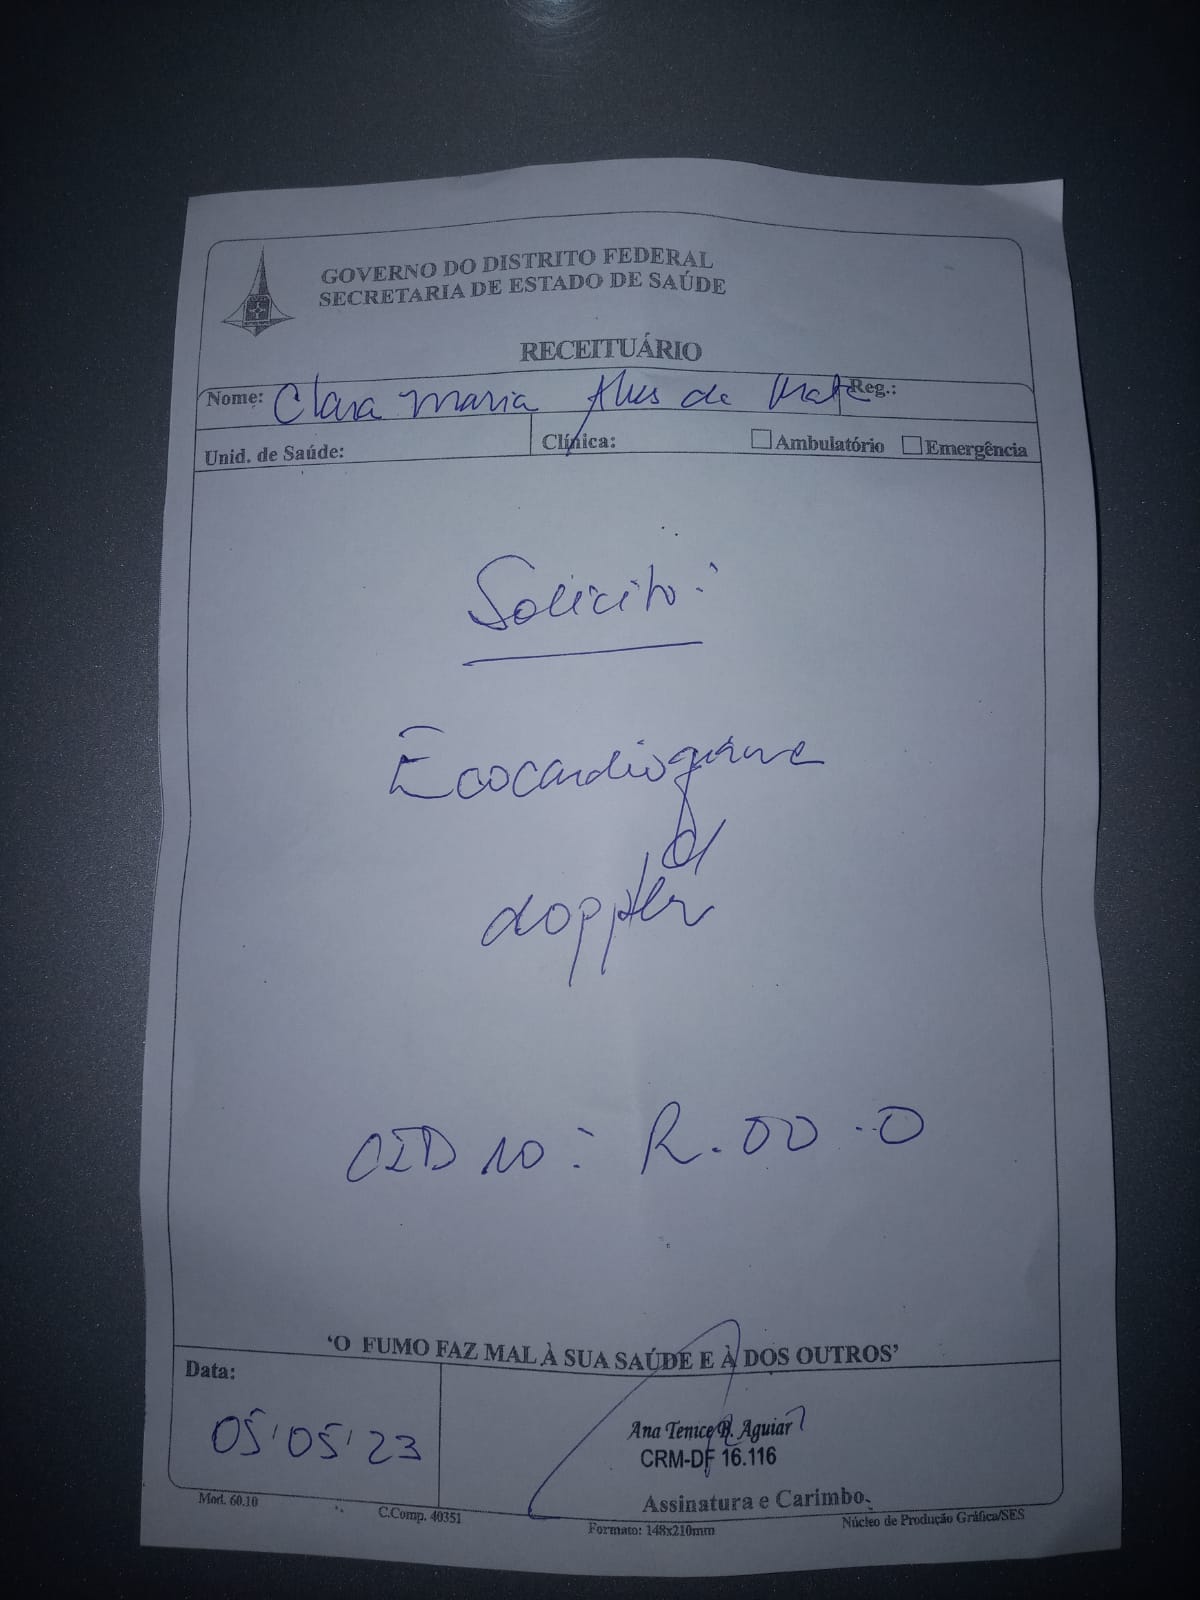 GOVERNO DO DISTRITO FEDERAL
SECRETARIA DE ESTADO DE SAÚDE
RECEITUÁRIO
Nome: Clara Maria Alves da Reg.:
Unid. de Saúde: Clínica: Ambulatório Emergência
Solicito:
Ecocardiograma
c/
doppler
CID 10: R.00.0
'O FUMO FAZ MAL À SUA SAÚDE E À DOS OUTROS'
Data:
05/05/23
Ana Tenice B. Aguiar
CRM-DF 16.116
Assinatura e Carimbo
Mod. 60.10 C.Comp. 40351 Formato: 148x210mm Núcleo de Produção Gráfica/SES